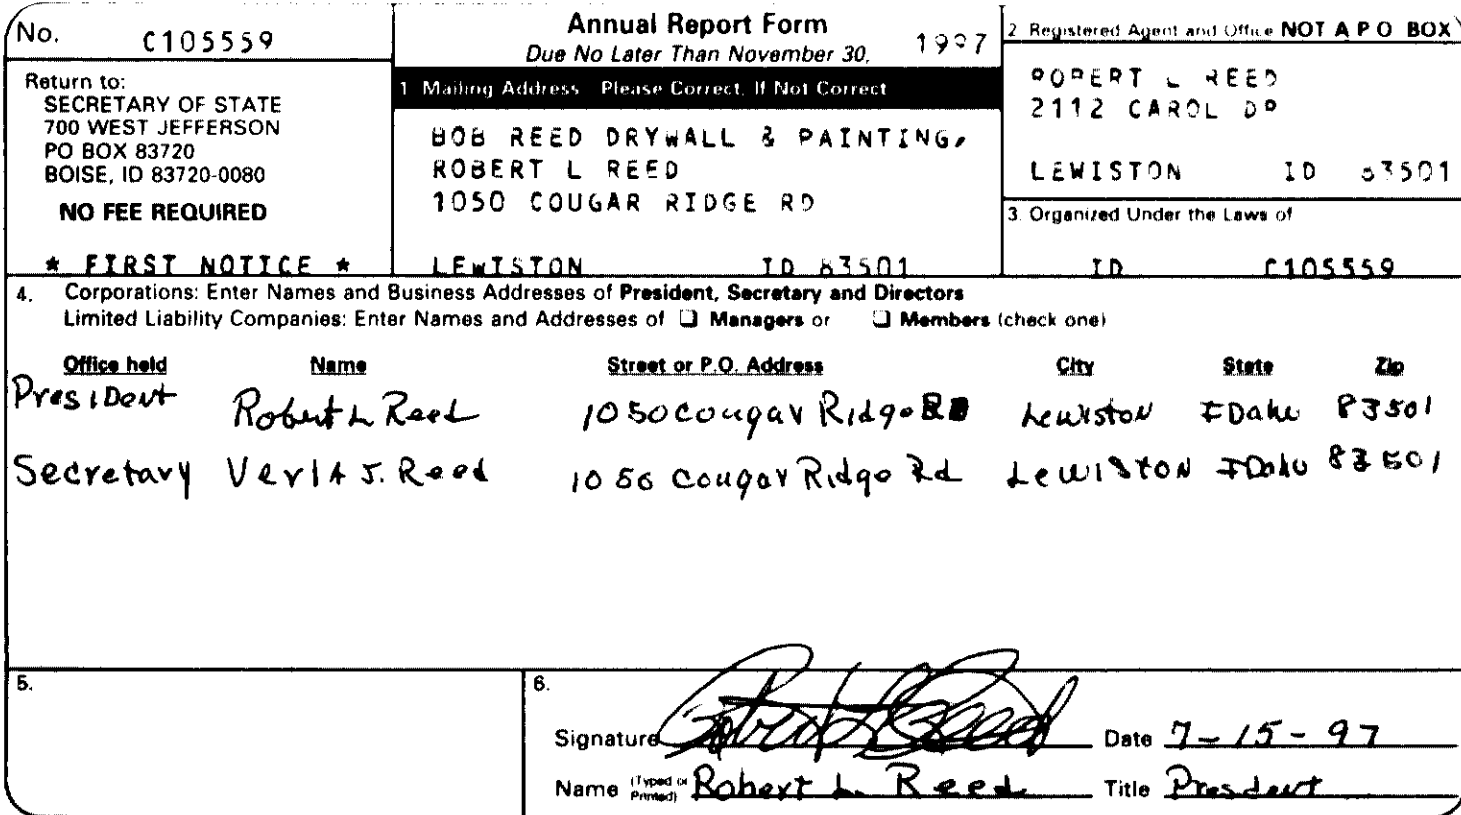 No. C105559
Return to:
SECRETARY OF STATE
700 WEST JEFFERSON
PO BOX 83720
BOISE, ID 83720-0080
NO FEE REQUIRED
* FIRST NOTICE *
Annual Report Form
Due No Later Than November 30, 1997
1 Mailing Address Please Correct, If Not Correct
BOB REED DRYWALL & PAINTING,
ROBERT L REED
1050 COUGAR RIDGE RD
LEWISTON ID 83501
2 Registered Agent and Office NOT A P O BOX
ROBERT L REED
2112 CAROL DR
LEWISTON ID 83501
3. Organized Under the Laws of
ID C105559
4. Corporations: Enter Names and Business Addresses of President, Secretary and Directors
Limited Liability Companies: Enter Names and Addresses of ❑ Managers or ❑ Members (check one)
Office held Name Street or P.O. Address City State Zip
PresiDent Robert L Reed 1050 cougar Ridge Rd Lewiston IDaho 83501
Secretary Verla J. Reed 1050 Cougar Ridge Rd Lewiston IDaho 83501
5.
6.
Signature Robert L Reed Date 7-15-97
Name (Typed or Printed) Robert L. Reed Title President